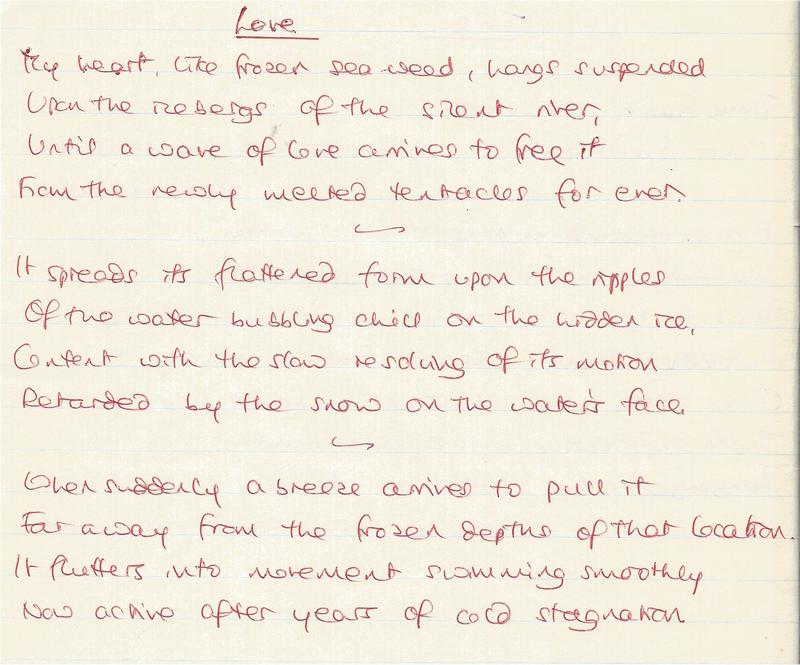 Love
My heart, like frozen sea weed, hangs suspended
Upon the icebergs of the silent river,
Until a wave of love arrives to free it
From the newly melted tentacles for ever.
It spreads its flattered form upon the ripples
Of the water bubbling chill on the hidden ice,
Content with the slow resolving of its motion
Retarded by the snow on the water's face.
When suddenly a breeze arrives to pull it
Far away from the frozen depths of that location.
It flutters into movement swimming smoothly
Now active after years of cold stagnation.